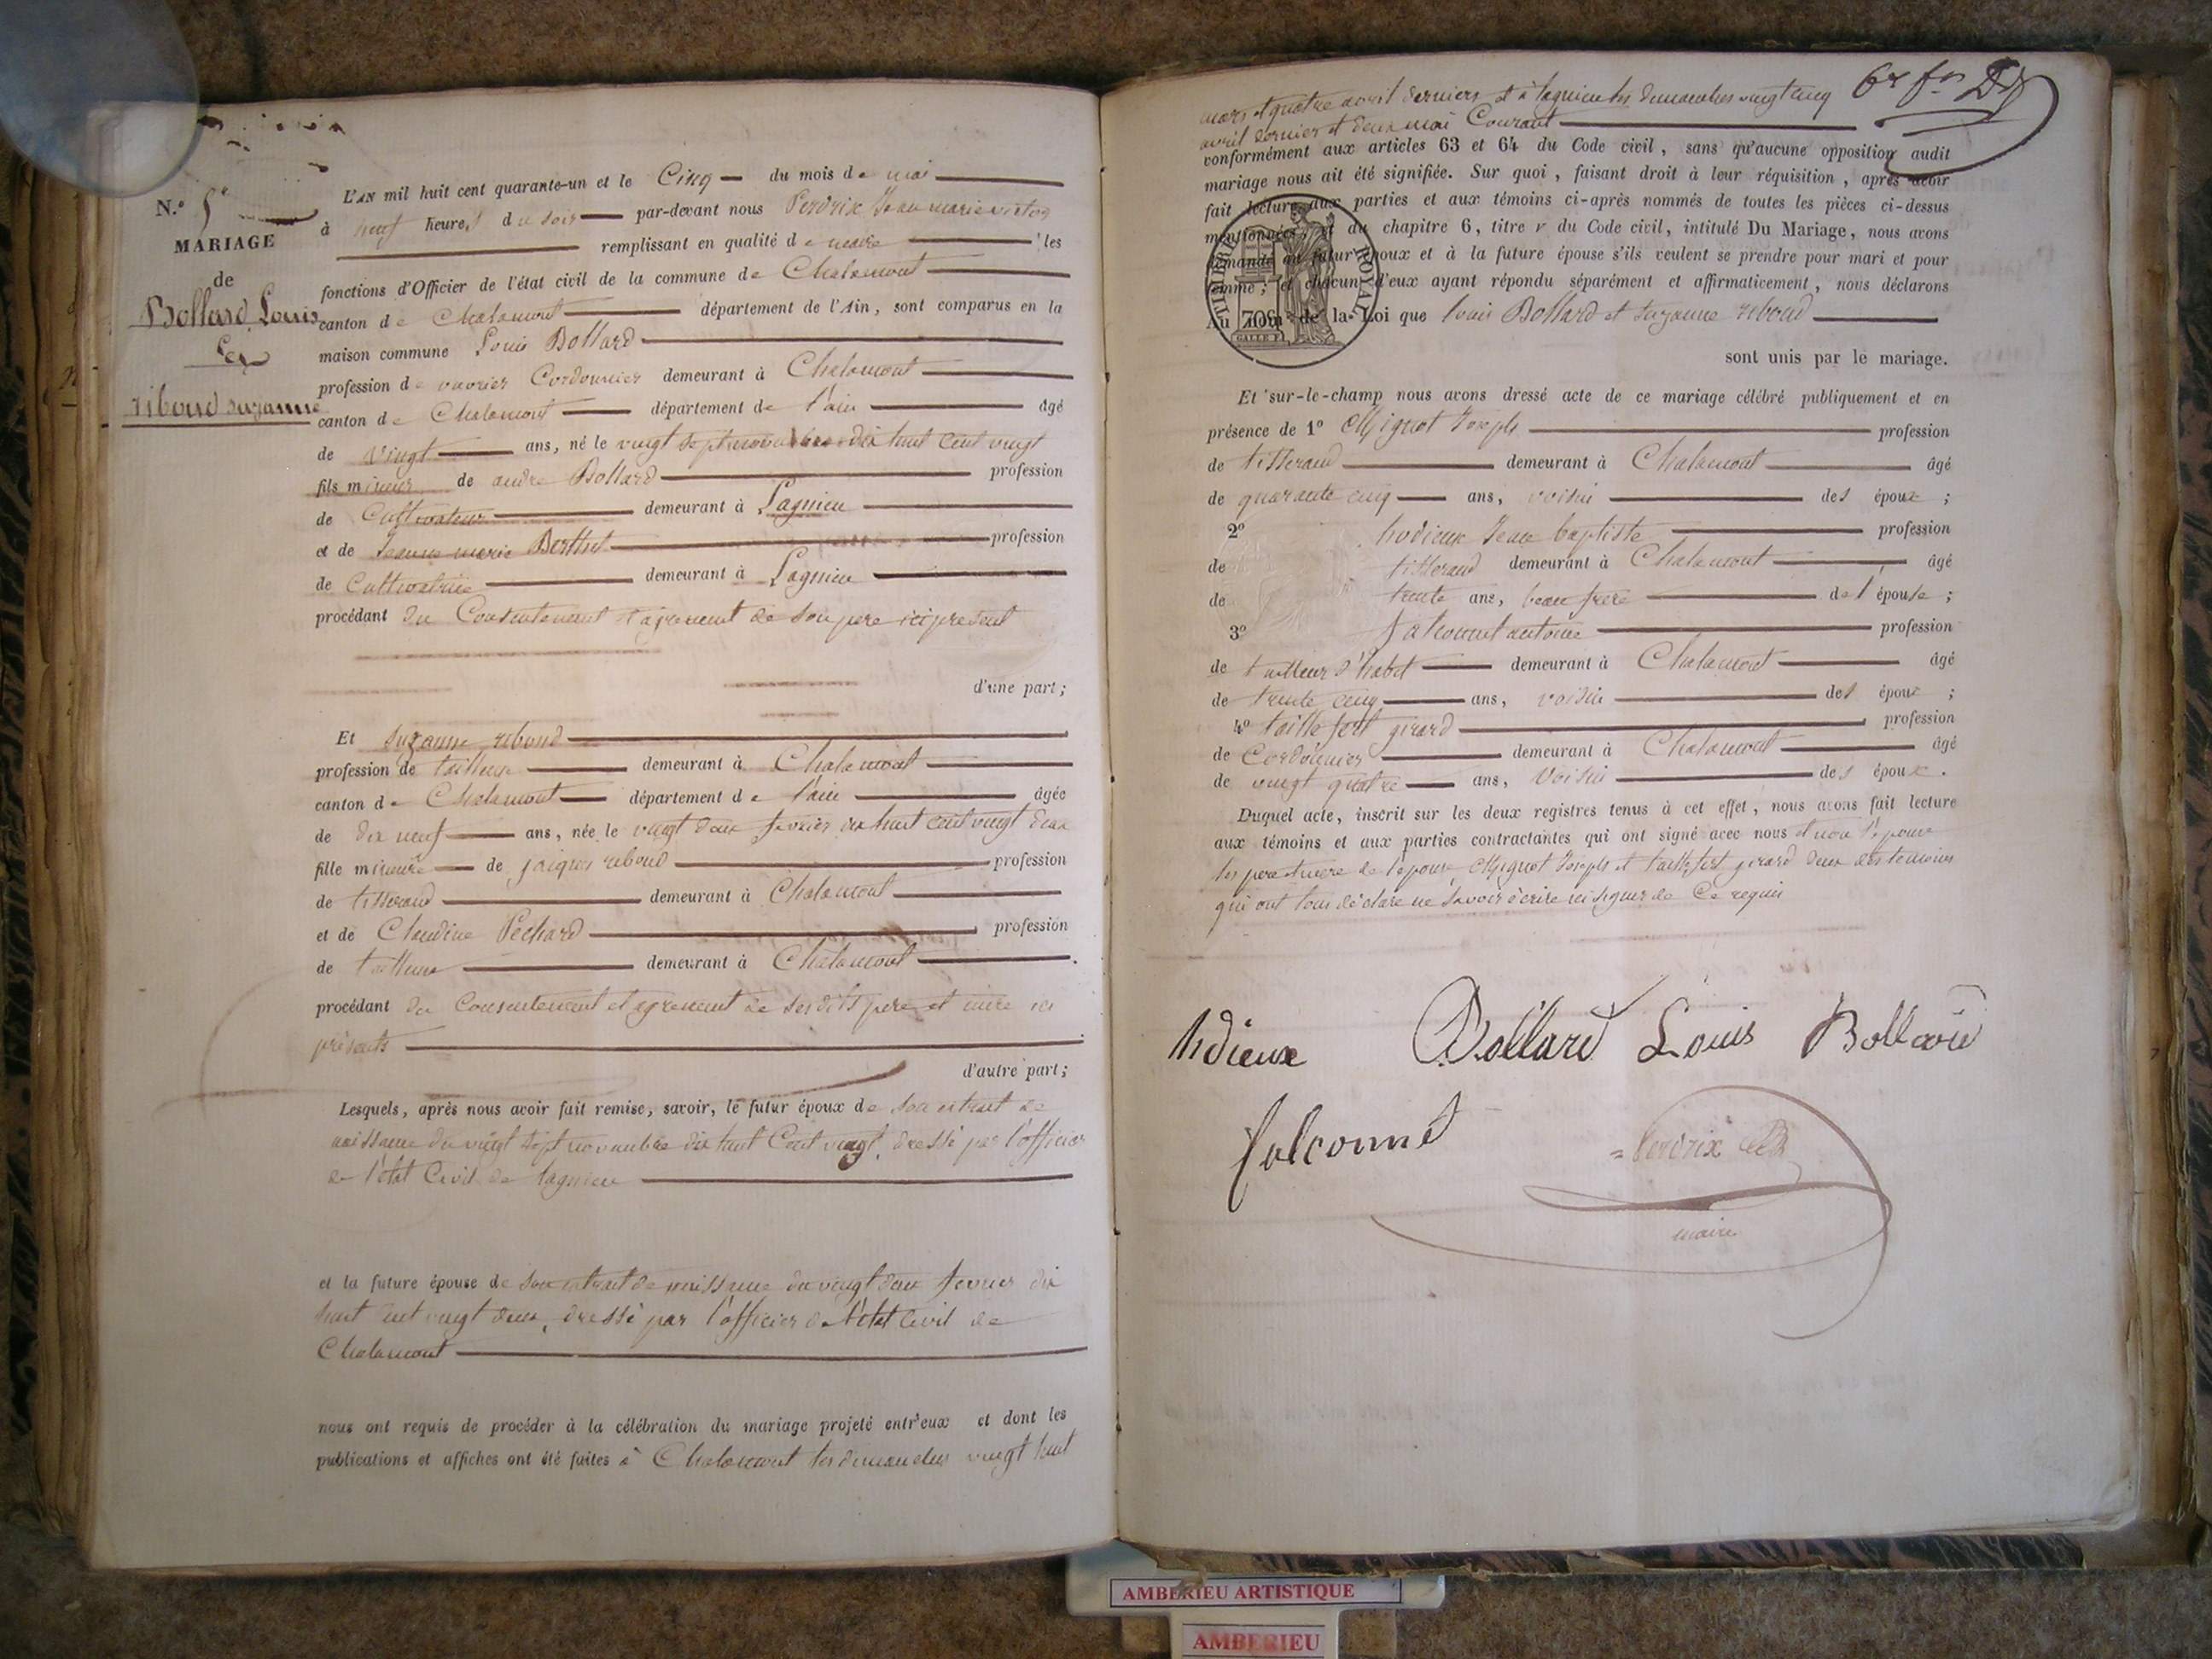 N.º 5e
MARIAGE
de
Bollard Louis
Et
riboud suzanne
L'AN mil huit cent quarante-un et le Cinq du mois de mai
à neuf heures du soir par-devant nous Perdrix Jean marie victor
remplissant en qualité de maire les
fonctions d'Officier de l'état civil de la commune de Chalamont
canton de Chalamont département de l'Ain, sont comparus en la
maison commune Louis Bollard
profession de ouvrier Cordonnier demeurant à Chalamont
canton de Chalamont département de l'ain âgé
de vingt ans, né le vingt sept novembre dix huit cent vingt
fils mineur de andré Bollard profession
de Cultivateur demeurant à Lagnieu
et de Jeanne marie Berthet profession
de Cultivatrice demeurant à Lagnieu
procédant du Consentement et agrement de son pere ici present
d'une part;
Et suzanne riboud
profession de tailleuse demeurant à Chalamont
canton de Chalamont département de l'ain âgée
de dix neuf ans, née le vingt deux fevrier dix huit cent vingt deux
fille mineure de jaques riboud profession
de tisserand demeurant à Chalamont
et de Claudine Pechard profession
de tailleuse demeurant à Chalamont.
procédant du Consentement et agrement de ses dits pere et mere ici
présents
d'autre part;
Lesquels, après nous avoir fait remise, savoir, le futur époux de son extrait de
naissance du vingt sept novembre dix huit Cent vingt, dressé par l'officier
de l'état Civil de lagnieu
et la future épouse de son extrait de naissance du vingt deux fevrier dix
huit cent vingt deux, dressé par l'officier de l'état civil de
Chalamont
nous ont requis de procéder à la célébration du mariage projeté entr'eux et dont les
publications et affiches ont été faites à Chalamont les dimanches vingt huit
mars et quatre avril derniers et à lagnieu les dimanches vingt cinq
avril dernier et deux mai Courant
conformément aux articles 63 et 64 du Code civil, sans qu'aucune opposition audit
mariage nous ait été signifiée. Sur quoi, faisant droit à leur réquisition, après avoir
fait lecture aux parties et aux témoins ci-après nommés de toutes les pièces ci-dessus
mentionnées, et du chapitre 6, titre v du Code civil, intitulé Du Mariage, nous avons
demandé au futur époux et à la future épouse s'ils veulent se prendre pour mari et pour
femme; et chacun d'eux ayant répondu séparément et affirmativement, nous déclarons
Au nom de la Loi que louis Bollard et suzanne riboud
TIMBRE ROYAL
70c
sont unis par le mariage.
Et sur-le-champ nous avons dressé acte de ce mariage célébré publiquement et en
présence de 1º Mignot Joseph profession
de tisserand demeurant à Chalamont âgé
de quarante cinq ans, voisin des époux;
2º hodieux Jean baptiste profession
de tisserand demeurant à Chalamont âgé
de trente ans, beau frere de l'épouse;
3º falconnet antoine profession
de tailleur d'habit demeurant à Chalamont âgé
de trente cinq ans, voisin des époux;
4º taillefert girard profession
de Cordonnier demeurant à Chalamont âgé
de vingt quatre ans, voisin des époux.
Duquel acte, inscrit sur les deux registres tenus à cet effet, nous avons fait lecture
aux témoins et aux parties contractantes qui ont signé avec nous et non l'épouse
les pere et mere de l'épouse, Mignot Joseph et taillefert girard deux des temoins
qui ont tous déclaré ne savoir écrire ni signer de Ce requis
hodieux Bollard Louis Bollard
falconnet
Perdrix
maire
AMBERIEU ARTISTIQUE
AMBERIEU